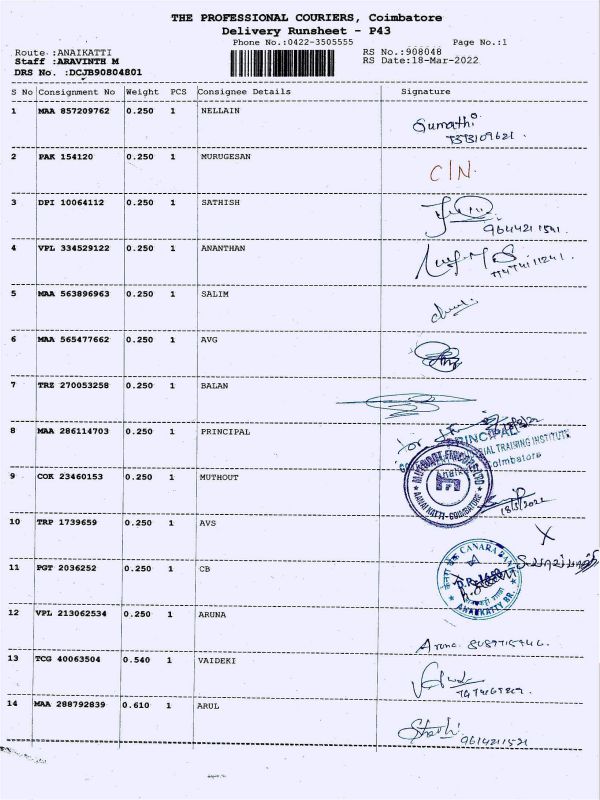 THE PROFESSIONAL COURIERS, Coimbatore
Delivery Runsheet - P43
Phone No.:0422-3505555 Page No.:1
Route :ANAIKATTI RS No.:908048
Staff :ARAVINTH M RS Date:18-Mar-2022
DRS No. :DCJB90804801
S No Consignment No Weight PCS Consignee Details Signature
1 MAA 857209762 0.250 1 NELLAIN
Sumathi
2 PAK 154120 0.250 1 MURUGESAN
C/N.
3 DPI 10064112 0.250 1 SATHISH
4 VPL 334529122 0.250 1 ANANTHAN
5 MAA 563896963 0.250 1 SALIM
6 MAA 565477662 0.250 1 AVG
7 TRZ 270053258 0.250 1 BALAN
8 MAA 286114703 0.250 1 PRINCIPAL
for PRINCIPAL
TRAINING INSTITUTE
Coimbatore
9 COK 23460153 0.250 1 MUTHOUT
MUTHOOT FINCORP LTD
ANAIKATTI - COIMBATORE
18/3/2022
10 TRP 1739659 0.250 1 AVS
X
11 PGT 2036252 0.250 1 CB
CANARA BANK
ANAIKATTY BR.
12 VPL 213062534 0.250 1 ARUNA
Aruna
13 TCG 40063504 0.540 1 VAIDEKI
14 MAA 288792839 0.610 1 ARUL
9614211521